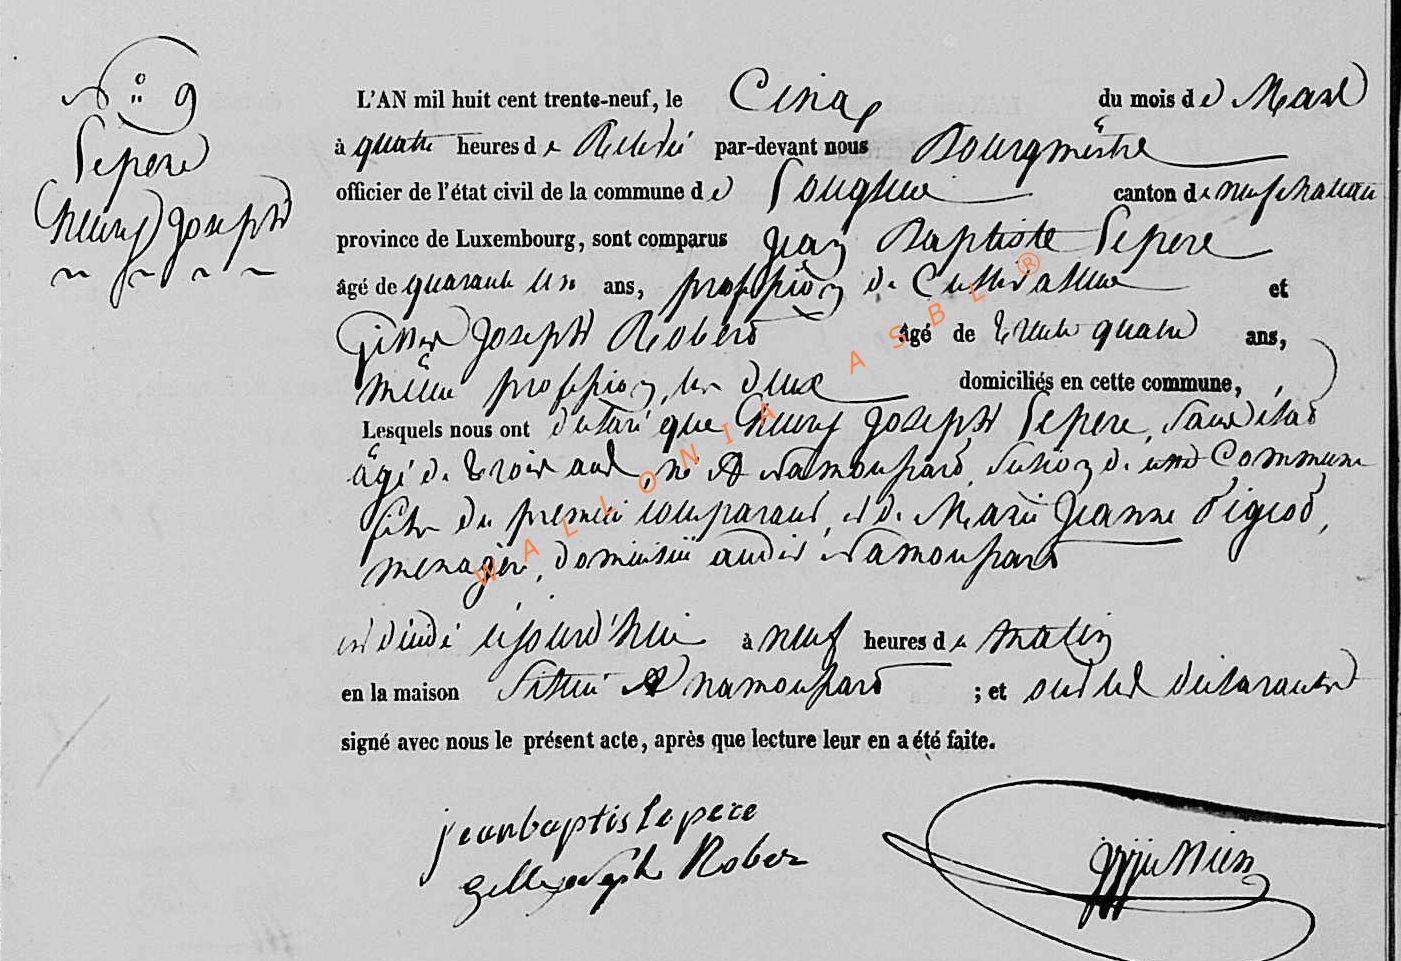 N° 9
Lepere
Henry Joseph
L'AN mil huit cent trente-neuf, le Cinq du mois de Mars
à quatre heures de Relevée par-devant nous Bourgmestre
officier de l'état civil de la commune de Longlier canton de neufchateau
province de Luxembourg, sont comparus Jean Baptiste Lepere
âgé de quarante un ans, profession de Cultivateur et
Gilles Joseph Robert âgé de trente quatre ans,
même profession, les deux domiciliés en cette commune,
Lesquels nous ont déclaré que Henry Joseph Lepere, sans état
âgé de trois ans, né A namoussart, section de cette Commune
fils du premier comparant, et de Marie Jeanne Pigeod,
menagère, domiciliée audit namoussart
est décédé aujourd'hui à neuf heures de matin
en la maison située A namoussart ; et ont les déclarants
signé avec nous le présent acte, après que lecture leur en a été faite.
jeanbaptis lepere
gille joseph Rober
WALLONIA ASBL ®